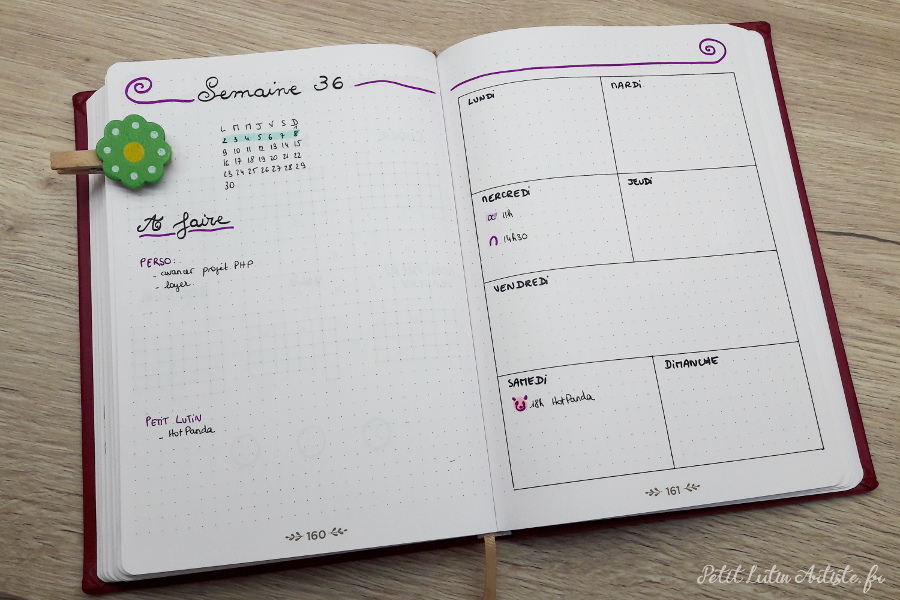 Semaine 36
L M M J V S D
2 3 4 5 6 7 8
9 10 11 12 13 14 15
16 17 18 19 20 21 22
23 24 25 26 27 28 29
30
A faire
PERSO:
- avancer projet PHP
- loyer
PETIT LUTIN
- HotPanda
160
LUNDI
MARDI
MERCREDI
11h
14h30
JEUDI
VENDREDI
SAMEDI
18h HotPanda
DIMANCHE
161
Petit Lutin Artiste.fr